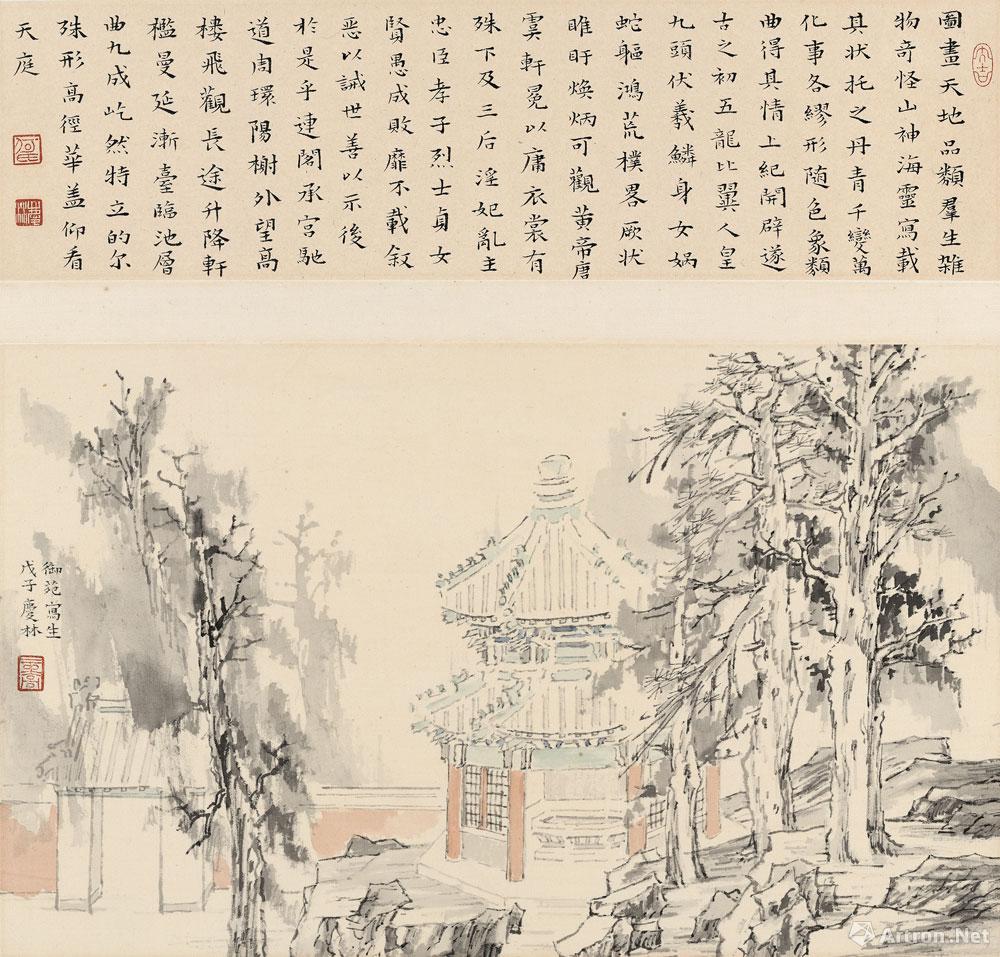 圖畫天地品類羣生雜
物奇怪山神海靈寫載
其狀托之丹青千變萬
化事各繆形隨色象類
曲得其情上紀開辟遂
古之初五龍比翼人皇
九頭伏羲鱗身女媧
蛇軀鴻荒樸畧厥狀
睢盱煥炳可觀黃帝唐
虞軒冕以庸衣裳有
殊下及三后淫妃亂主
忠臣孝子烈士貞女
賢愚成敗靡不載叙
惡以誡世善以示後
於是乎連閣承宮馳
道周環陽榭外望高
樓飛觀長途升降軒
檻曼延漸臺臨池層
曲九成屹然特立的尔
殊形高徑華盖仰看
天庭
御苑寫生
戊子慶林
Artron.Net